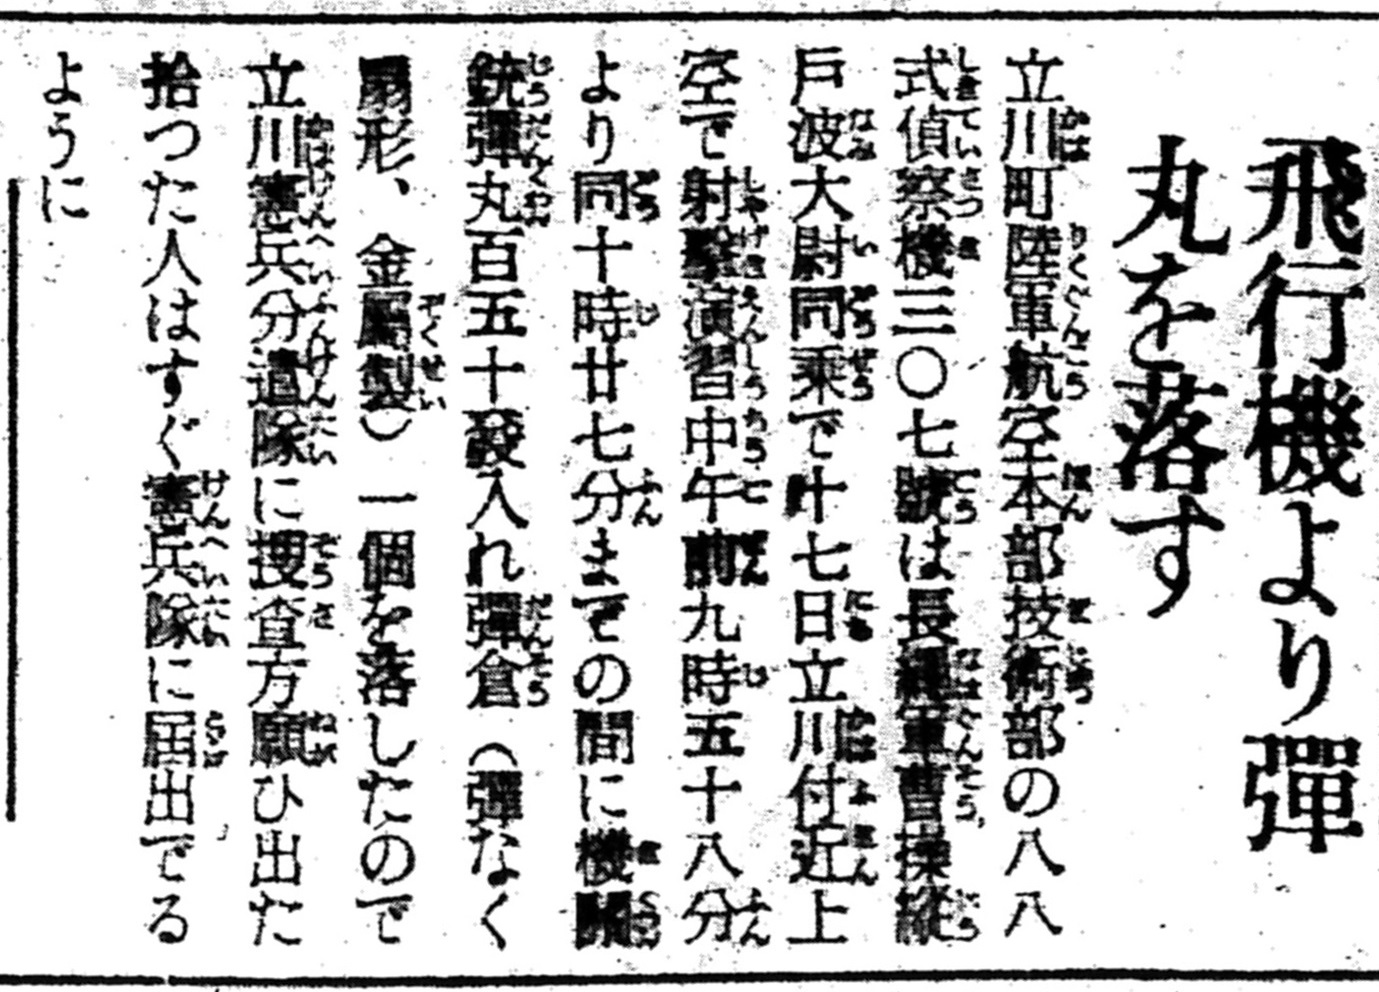 飛行機より彈
丸を落す
立川町陸軍航空本部技術部の八八
式偵察機三〇七號は長繩軍曹操縱
戸波大尉同乘で十七日立川付近上
空で射擊演習中午前九時五十八分
より同十時廿七分までの間に機關
銃彈丸百五十發入れ彈倉（彈なく
扇形、金屬製）一個を落したので
立川憲兵分遣隊に搜査方願ひ出た
拾つた人はすぐ憲兵隊に届出でる
ように